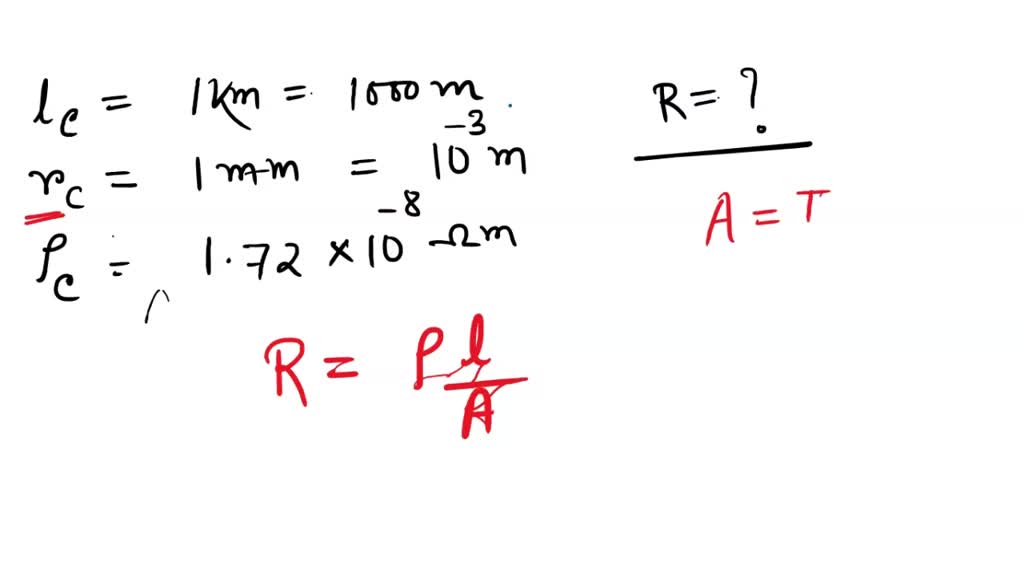 l_c = 1km = 1000 m
r_c = 1 mm = 10^-3 m
ρ_c = 1.72 × 10^-8 Ωm
R = ρ l/A
R = ?
A = π